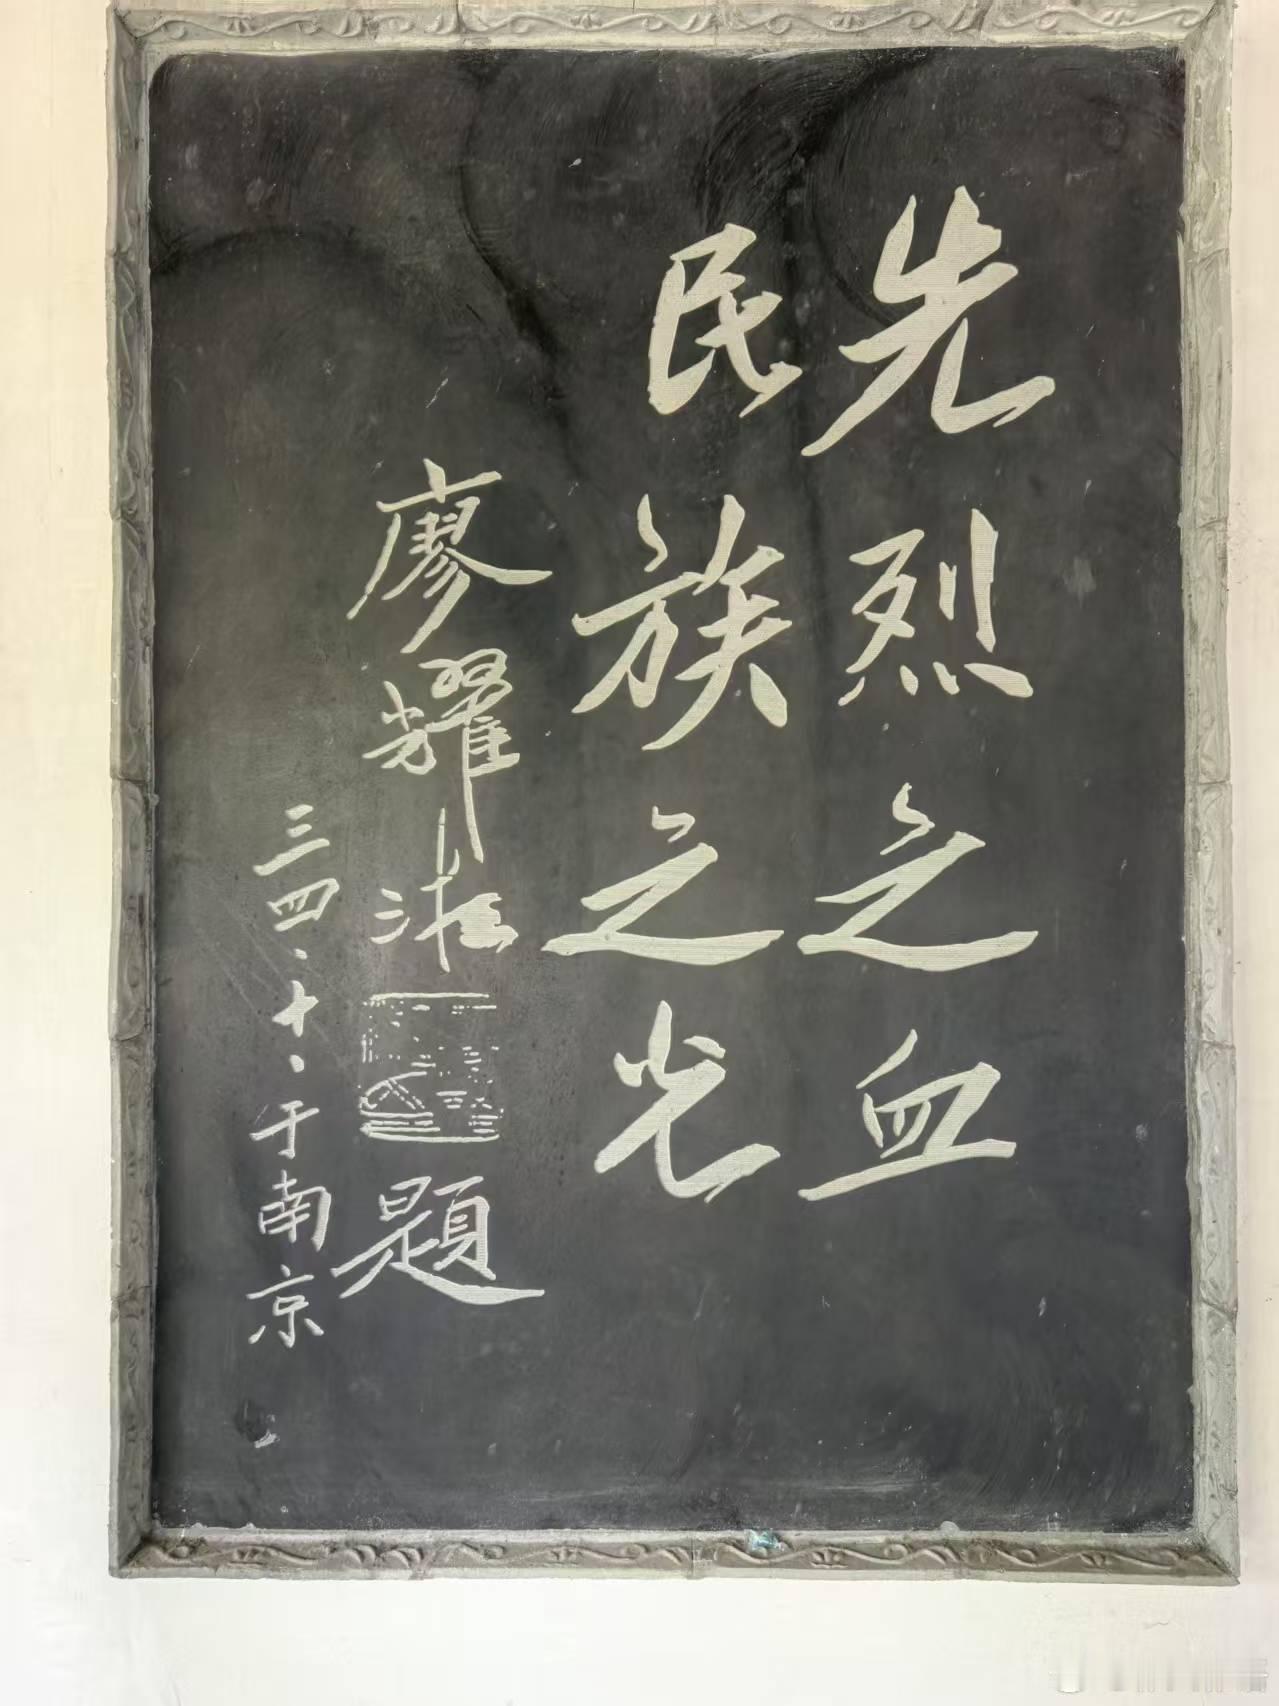 先烈之血
民族之光
廖耀湘題
三四·十·于南京